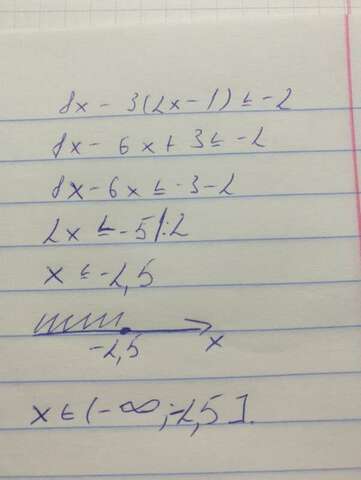 8x - 3(2x - 1) ≤ -2
8x - 6x + 3 ≤ -2
8x - 6x ≤ -3 - 2
2x ≤ -5 | : 2
x ≤ -2,5
-2,5 x
x ∈ (-∞; -2,5].